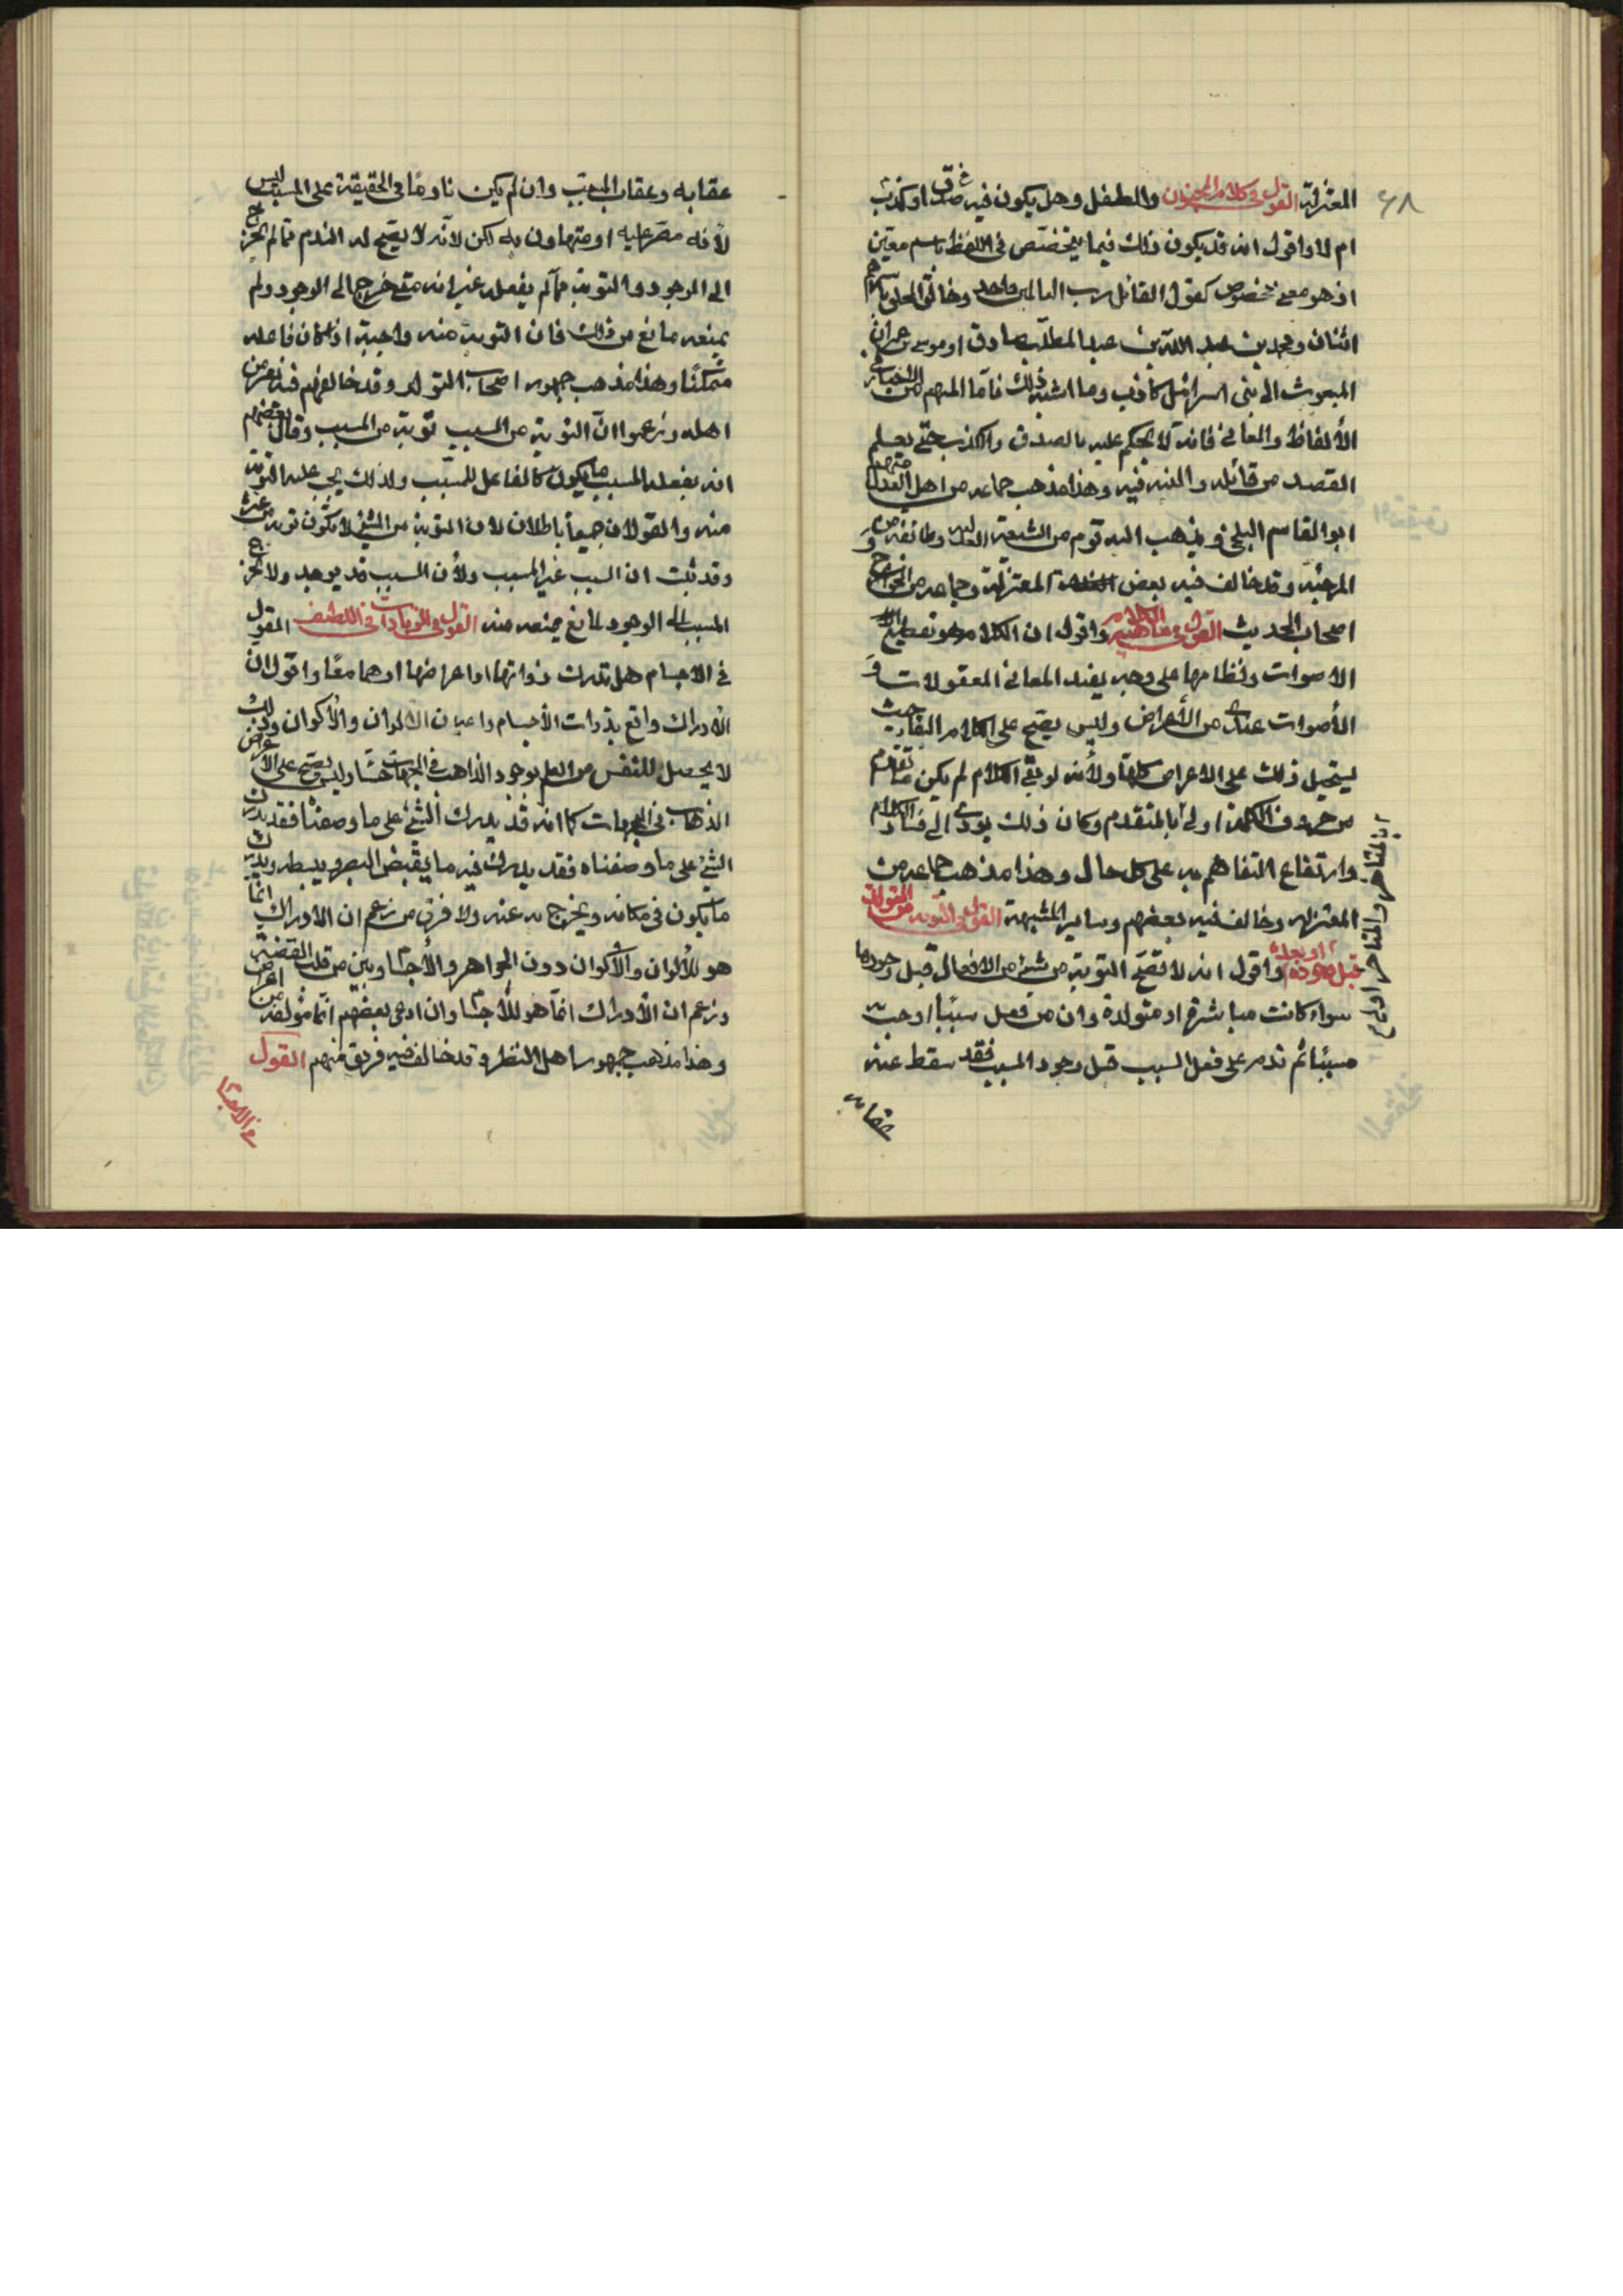 ٤٨
المعتزلة القول فى كلام المجنون والطفل وهل يكون فيه صدق او كذب
ام لا واقول انه قد يكون ذلك فيما يتخصّص فى اللفظ باسم معيّن
اذ هو معنى مخصوص كقول القائل رب العالمين واحد وخالق الخلق باسرهم
اثنان ومحمد بن عبد الله بن عبد المطلّب صادق او موسى بن عمران
المبعوث الى بنى اسرائيل كاذب وما اشبه ذلك فامّا المبهم من
الألفاظ والمعانى فانه لا يحكم عليه بالصدق والكذب حتّى يعلم
القصد من قائله والنيه فيه وهذا مذهب جماعه من اهل العدل منهم
ابوالقاسم البلخى ويذهب اليه قوم من الشيعة العدليه وطائفة من
المرجئه وقد خالف فيه بعض المعتزلة وجماعه من الخوارج و
اصحاب الحديث القول فى ماهية الكلام واقول ان الكلام هو تقطيع
الاصوات ونظامها على وجه يفيد المعانى المعقولات و
الأصوات عندى من الأعراض وليس يصحّ على الكلام البقاء حيث
يستحيل ذلك على الاعراض كلها ولأنه لو بقى الكلام لم يكن ما تقدم
من حروف الكلمة اولى بالمتقدم وكان ذلك يودى الى فساد الكلام
وارتفاع التفاهم به على كل حال وهذا مذهب جماعه من
المعتزله وخالف فيه بعضهم وساير المشبهة القول فى التوبه من المتولدات
قبل وجوده او بعده واقول انه لا تصحّ التوبة من شىء من الافعال قبل وجودها
سواء كانت مباشرة او متولدة وان من فعل سببا اوجب به
مسببا ثم ندم على فعل السبب قبل وجود المسبب فقد سقط عنه
عقابه
عقابه وعقاب المسبّب وان لم يكن نادمًا فى الحقيقة على المسبب ليس
لأنه مصر عليه او متهاون به لكن لأنه لا يصحّ له الندم ممّا لم يخرج
الى الوجود والتوبة ممّا لم يفعله غير انه متى خرج الى الوجود ولم
يمنعه مانع من ذلك فان التوبة منه واجبة اذا كان فاعله
متمكنًا وهذا مذهب جمهور اصحاب التولد وقد خالفهم فيه نفر من
اهله وزعموا انّ التوبة من السبب توبة من المسبب وقال بعضهم
انه بفعله السبب يكون كالفاعل للمسبّب ولذلك يجب عليه التوبة
منه والقولان جميعاً باطلان لان التوبة من الشىء لا يكون توبة من غيره
وقد ثبت ان السبب غير المسبب ولأن السبب قد يوجد ولا يخرج
المسبب الى الوجود لمانع يمنعه منه القول فى الزيادات فى اللطيف القول
فى الاجسام هل تدرك ذواتها او اعراضها او هما معًا واقول ان
الادراك واقع بذوات الأجسام واعيان الالوان والأكوان وذلك
لا يحصل للنفس من العلم بوجود الذاهب فى الجهات حسّا وليس يصحّ على الاعراض
الذهاب فى الجهات كما انه قد يدرك الشىء على ما وصفنا فقد يدرك
الشىء على ما وصفناه فقد يدرك فيه ما يقبض البصر ويبسطه ويدرك
ما يكون فى مكانه ويخرج به عنه ولا فرق بين من زعم ان الادراك انما
هو للألوان والأكوان دون الجواهر والأجسام وبين من قلب القضية
وزعم ان الادراك انمّا هو للأجسام وان ادعى بعضهم انمّا مؤلفة من اعراض
وهذا مذهب جمهور اهل النظر وقد خالف فيه فريق منهم القول
فى الاجسام